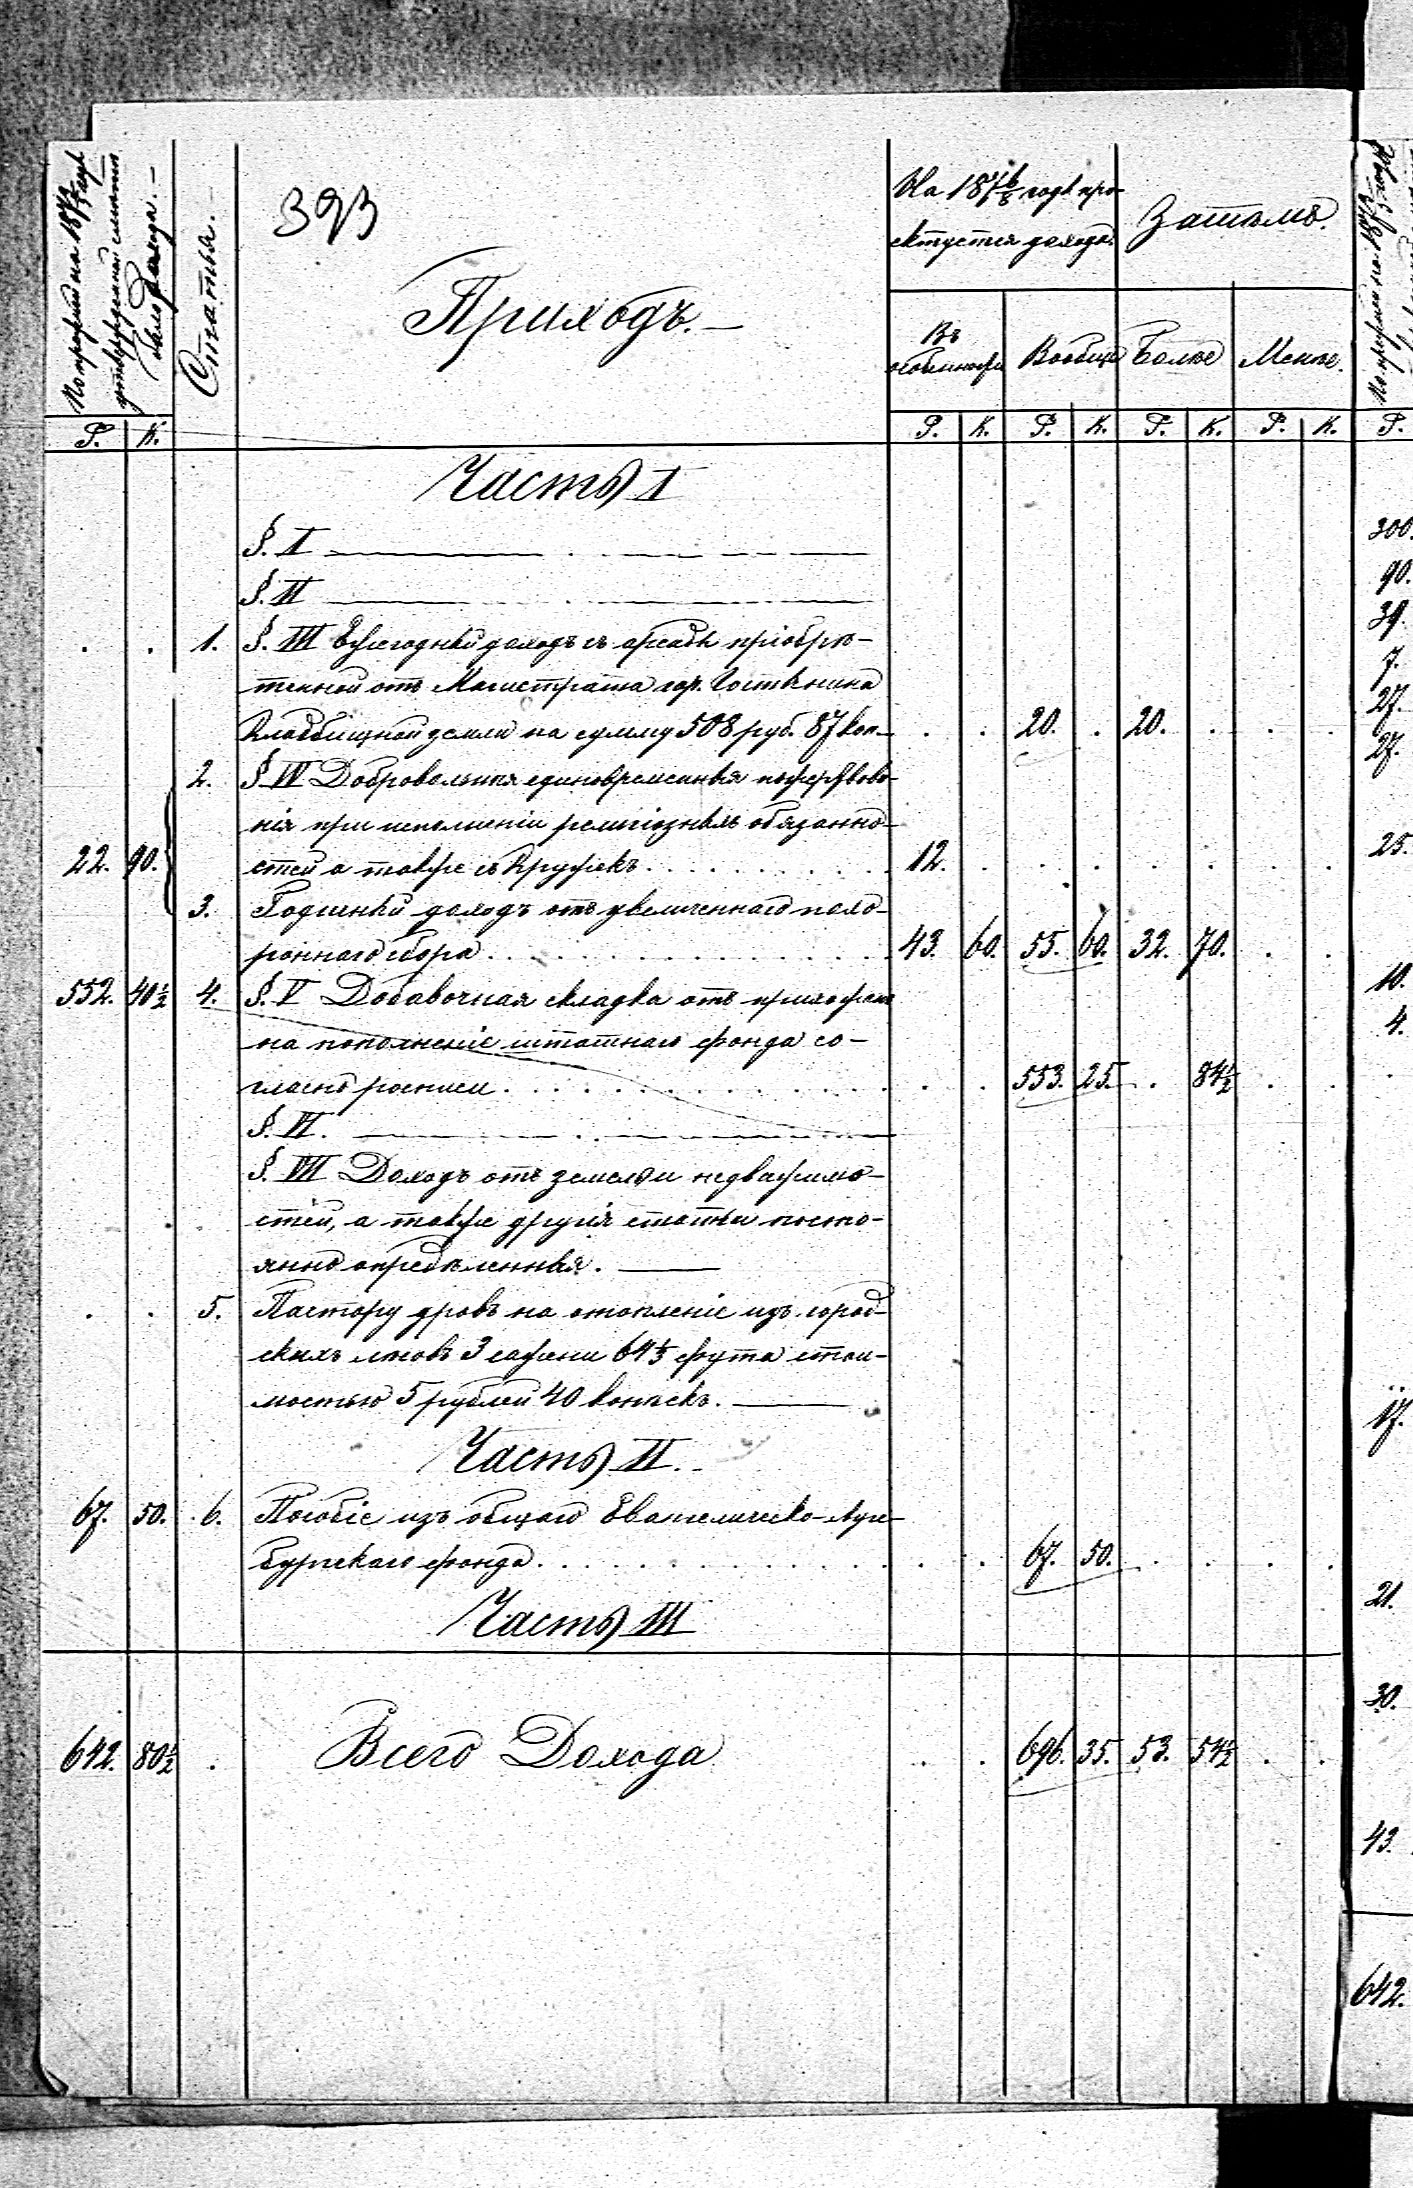 393
По прежней на 187 2/3 годъ
утвержденной смѣтѣ
было дохода. —
Статья.
Приходъ. —
На 187 6/8 годъ про-
ектуется дохода.
Затѣмъ.
Въ
особенности
Вообще
Болѣе
Менѣе.
Р. К. Р. К. Р. К. Р. К. Р. К.
Часть I
§. I
§. II
. . 1. §. III Ежегодный доходъ съ аренды пріобрѣ-
тенной отъ Магистрата гор. Гостынина
Кладбищной земли на сумму 508 руб. 87 коп. . . 20. . 20. . . .
2. § IV Добровольныя единовременныя пожертвова-
нія при исполненіи религіозныхъ обязанно-
22. 90. стей а также съ Кружекъ. 12. . . . . . . .
3. Годичный доходъ отъ увеличеннаго похо-
роннаго сбора. 43. 60. 55. 60. 32. 70. . .
552. 40½ 4. §. V Добавочная складка отъ прихожанъ
на пополненіе штатнаго фонда со-
гласно росписи. . . 553. 25. . 84½ . .
§. VI.
§. VII Доходъ отъ земель и недвижимо-
стей, а также другія статьи посто-
янно опредѣленныя.
. . 5. Пастору дровъ на отопленіе изъ город-
скихъ лѣсовъ 3 сажени 64⅓ фута стои-
мостью 5 рублей 40 копѣекъ.
Часть II.
67. 50. 6. Пособіе изъ общаго Евангелическо-Ауге-
бургскаго фонда. . . 67. 50. . . . .
Часть III
642. 80½ . Всего Дохода . . 696. 35. 53. 54½ . .
По прежней на 187 2/3 годъ
Р.
300.
90.
39.
7.
27.
27.
25.
10.
4.
17.
21.
30.
43.
642.